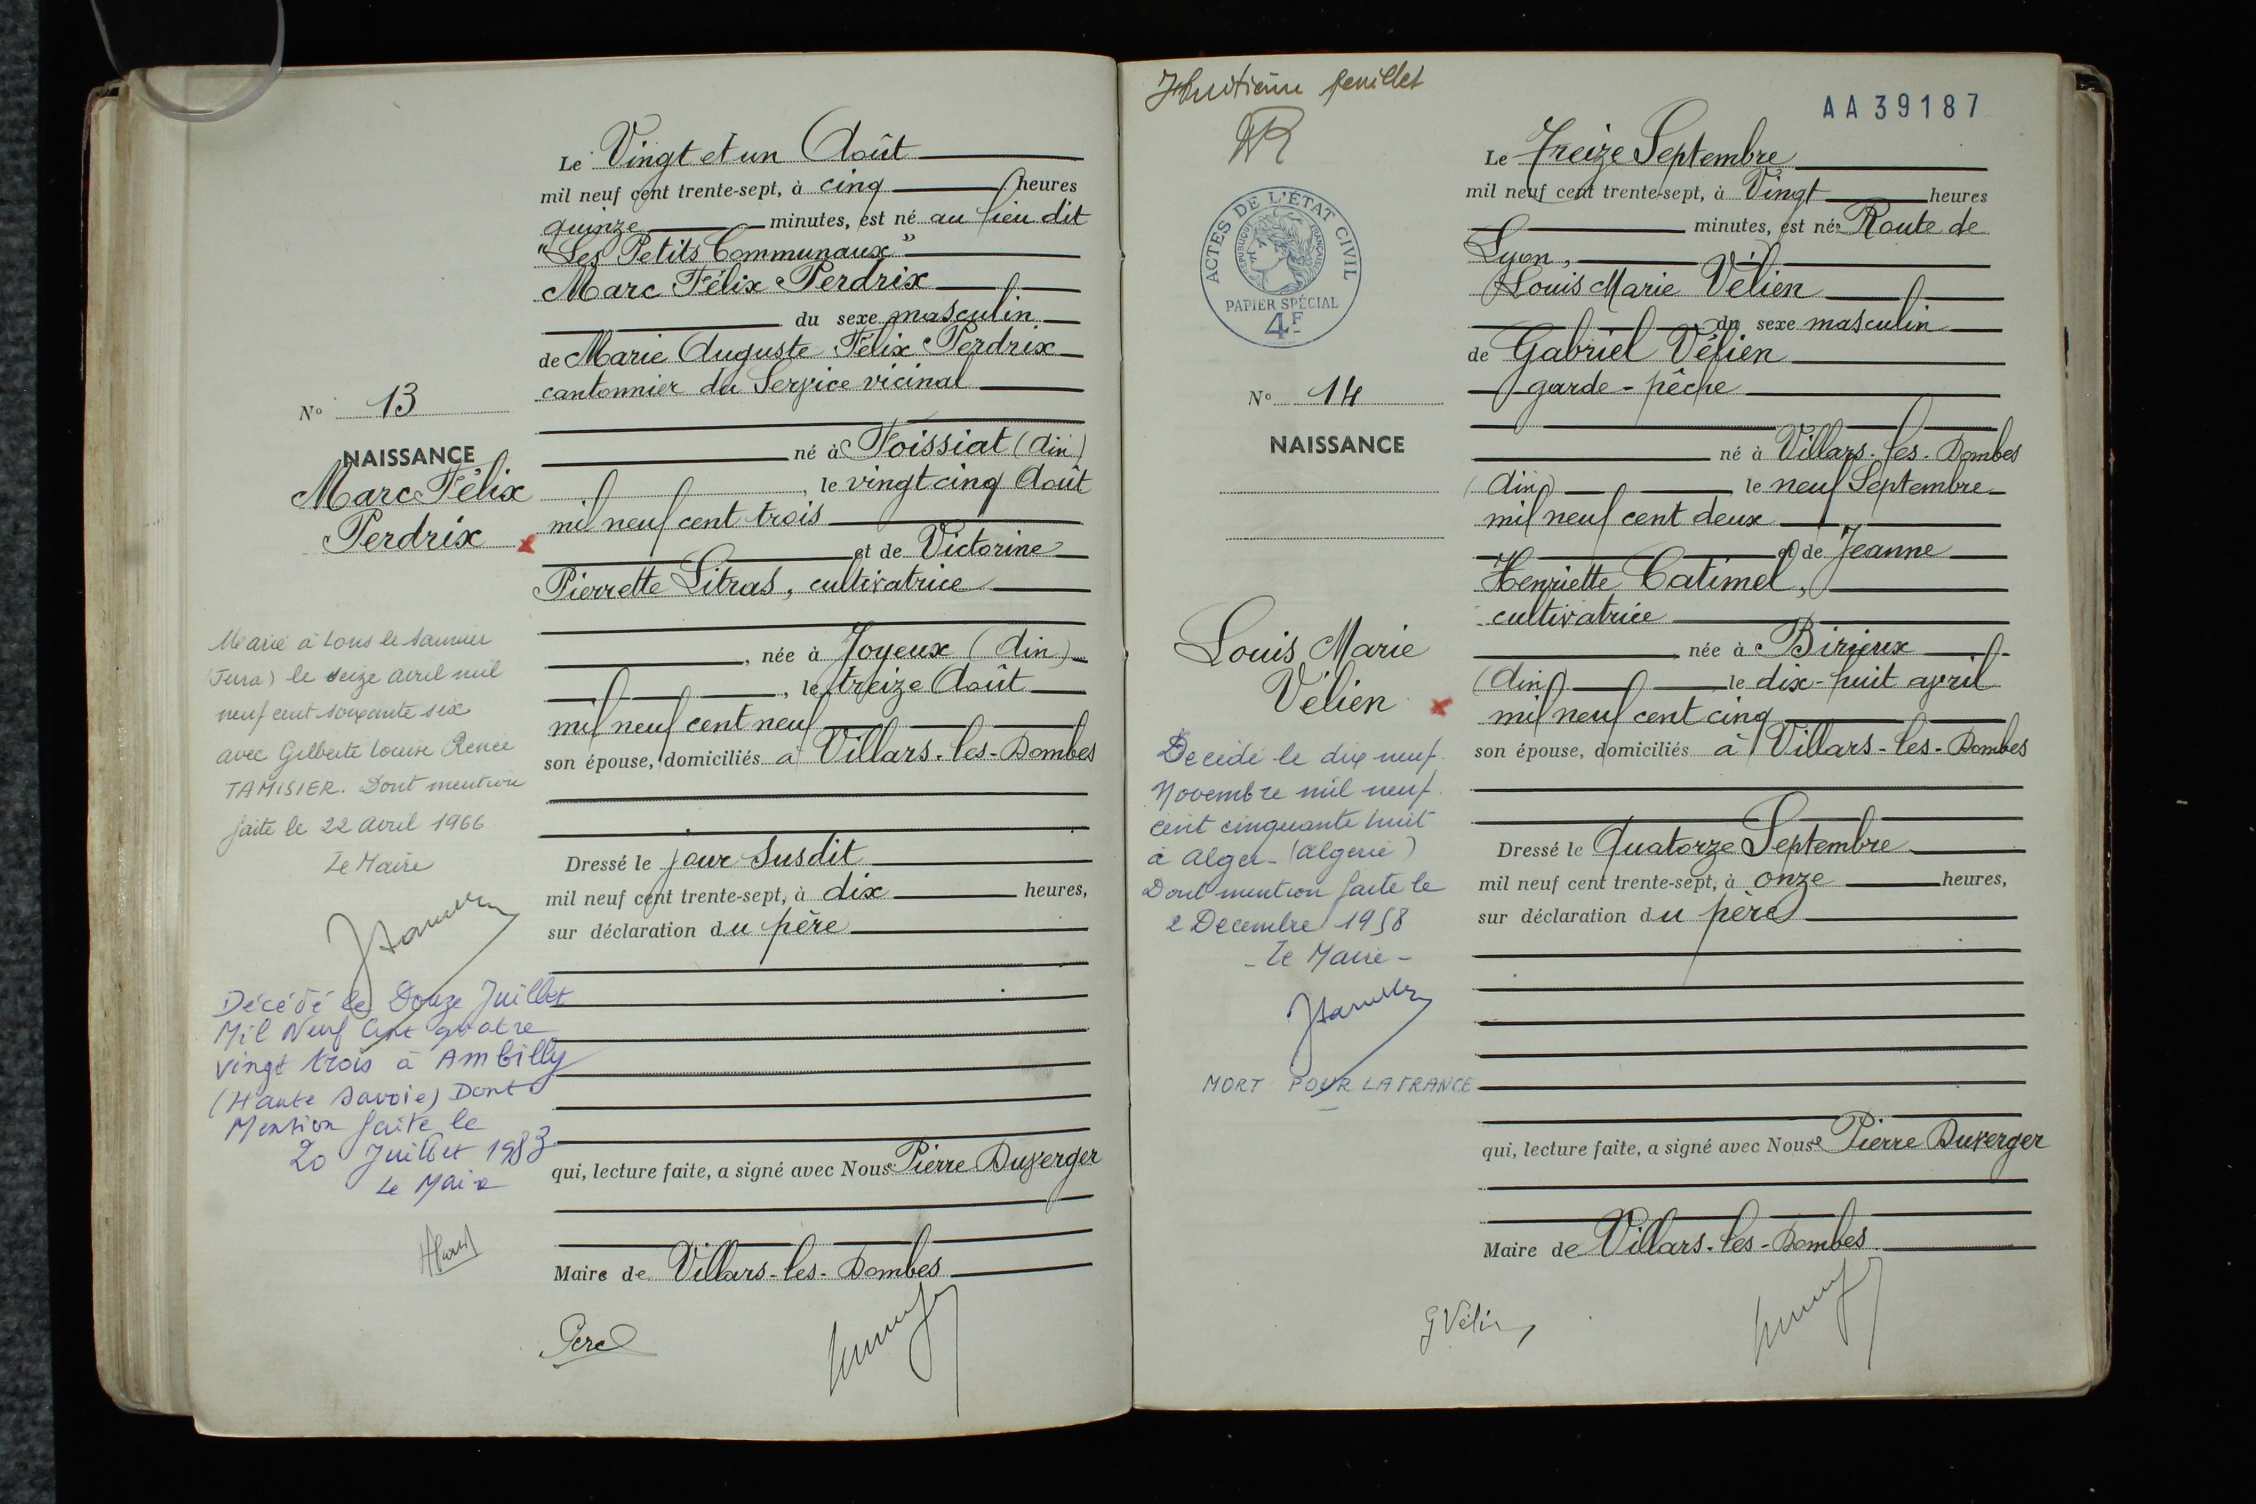 Le Vingt et un Août
mil neuf cent trente-sept, à cinq heures
quinze minutes, est né au lieu dit
"Les Petits Communaux"
Marc Félix Perdrix
du sexe masculin
de Marie Auguste Félix Perdrix
cantonnier du Service vicinal
N° 13
NAISSANCE
Marc Félix
Perdrix
né à Foissiat (Ain)
, le vingt cinq Août
mil neuf cent trois
et de Victorine
Pierrette Litras, cultivatrice
, née à Joyeux (Ain)
, le treize Août
mil neuf cent neuf
son épouse, domiciliés à Villars-les-Dombes
Dressé le jour susdit
mil neuf cent trente-sept, à dix heures,
sur déclaration du père
qui, lecture faite, a signé avec Nous Pierre Duverger
Maire de Villars-les-Dombes
Marié à Lons le Saunier
(Jura) le seize avril mil
neuf cent soixante six
avec Gilberte Louise Renée
TAMISIER. Dont mention
faite le 22 avril 1966
Le Maire
Décédé le Douze Juillet
Mil Neuf Cent quatre
vingt trois à Ambilly
(Haute Savoie) Dont
Mention faite le
20 Juillet 1983
Le Maire
Huitième feuillet
AA39187
ACTES DE L'ÉTAT CIVIL
RÉPUBLIQUE FRANÇAISE
PAPIER SPÉCIAL
4F
Le Treize Septembre
mil neuf cent trente-sept, à Vingt heures
minutes, est né Route de
Lyon,
Louis Marie Vélien
du sexe masculin
de Gabriel Vélien
garde-pêche
N° 14
NAISSANCE
Louis Marie
Vélien
né à Villars-les-Dombes
(Ain) le neuf Septembre
mil neuf cent deux
et de Jeanne
Henriette Catimel,
cultivatrice
née à Birieux
(Ain) le dix-huit avril
mil neuf cent cinq
son épouse, domiciliés à Villars-les-Dombes
Dressé le Quatorze Septembre
mil neuf cent trente-sept, à onze heures,
sur déclaration du père
qui, lecture faite, a signé avec Nous Pierre Duverger
Maire de Villars-les-Dombes
G Vélien
Decédé le dix neuf
Novembre mil neuf
cent cinquante huit
à Alger - (Algerie)
Dont mention faite le
2 Decembre 1958
- Le Maire -
MORT POUR LA FRANCE